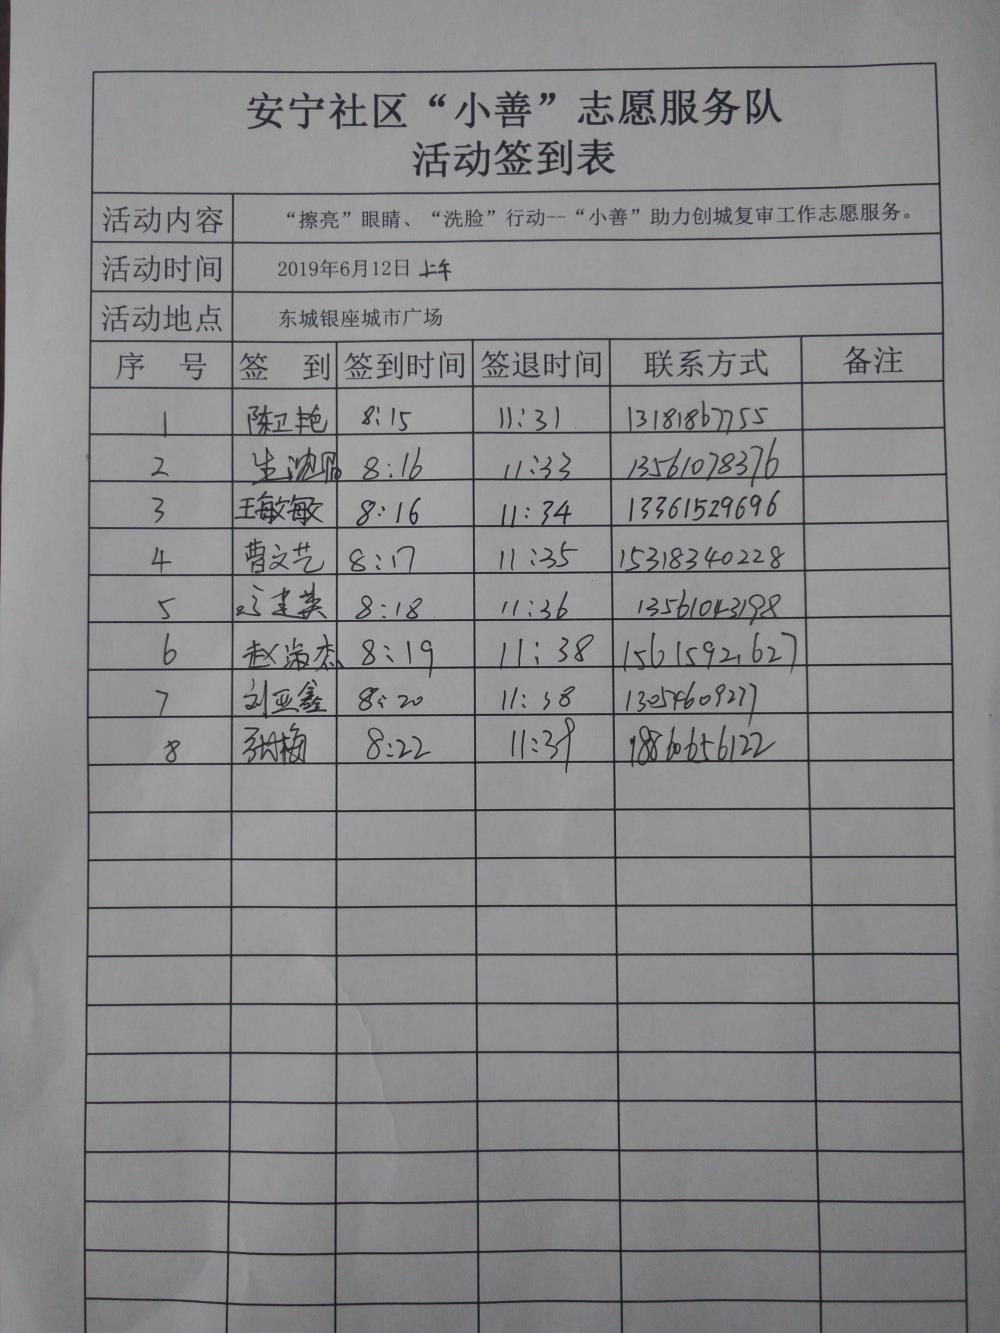 安宁社区“小善”志愿服务队
活动签到表
活动内容 “擦亮”眼睛、“洗脸”行动--“小善”助力创城复审工作志愿服务。
活动时间 2019年6月12日 上午
活动地点 东城银座城市广场
序 号 签 到 签到时间 签退时间 联系方式 备注
1 陈卫艳 8:15 11:31 13181867755
2 8:16 11:33 13561078376
3 王敏敏 8:16 11:34 13361529696
4 曹文艺 8:17 11:35 15318340228
5 8:18 11:36 13561043198
6 8:19 11:38 15615921627
7 刘亚鑫 8:20 11:38 13054609277
8 8:22 11:39 18860656122